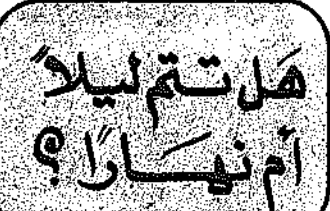 هَل تتم ليلاً
أم نهارًا ؟